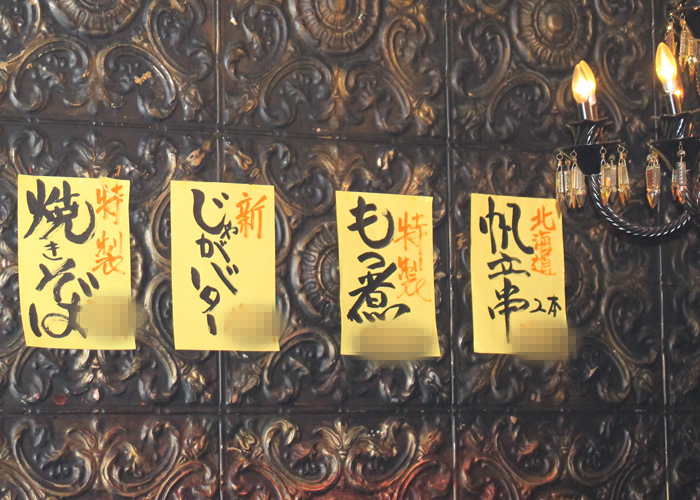 特製
焼きそば
新
じゃがバター
特製
もつ煮
北海道
帆立串
2本